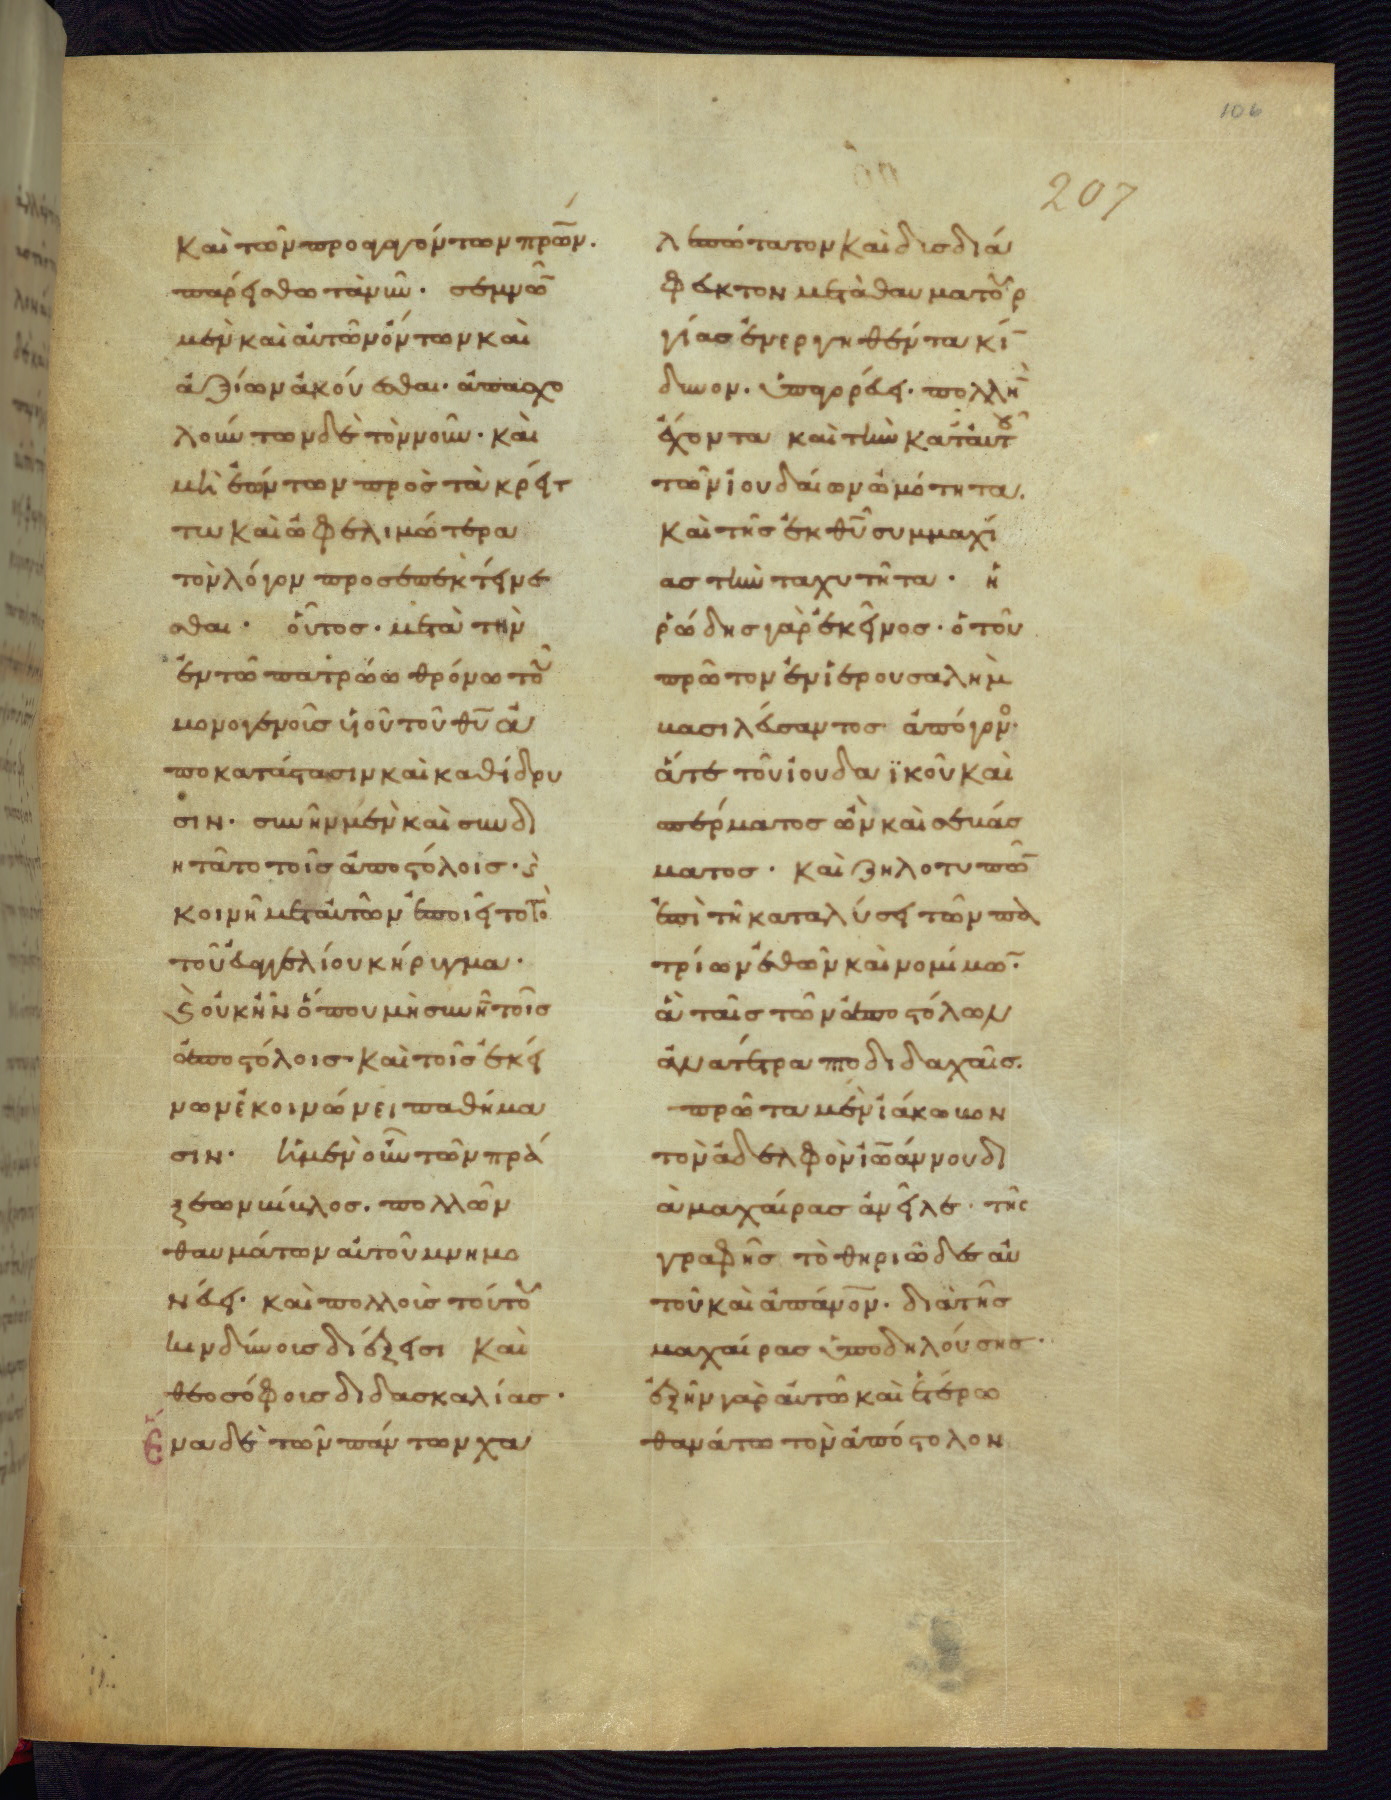 106
207
καὶ τῶν προαγόντων πρώτων.
παρείσθω τανῦν· σεμνῶν
μὲν καὶ αὐτῶν ὄντων καὶ
ἀξίων ἀκούεσθαι· ἀπασχο
λούντων δὲ τὸν νοῦν· καὶ
μὴ ἐώντων πρὸς τὰ κρείτ
τω καὶ ὠφελιμώτερα
τὸν λόγον προσεπεκτείνε
σθαι· οὗτος· μετὰ τὴν
ἐν τῶ πατρώω θρόνω τοῦ
μονογενοῦς υἱοῦ τοῦ θῦ ἀ
ποκατάστασιν καὶ καθίδρυ
σιν· συνῆν μὲν καὶ συνδι
ητᾶτο τοῖς ἀποστόλοις· καὶ
κοινῆ μετ' αὐτῶν ἐποιεῖτο τὸ
τοῦ εὐαγγελίου κήρυγμα·
καὶ οὐκ ἦν ὅπου μὴ συνῆν τοῖς
ἀποστόλοις· καὶ τοῖς ἐκεί
νων ἐκοινώνει παθήμα
σιν· ἡ μὲν οὖν τῶν πρά
ξεων βίβλος· πολλῶν
θαυμάτων αὐτοῦ μνημο
νεύει· καὶ πολλοῖς τούτου
κινδύνοις διέξεισι καὶ
θεοσόφοις διδασκαλίας·
ἕνα δὲ τῶν πάντων χα
λεπώτατον καὶ δισδιά
φευκτον μετὰ θαυματουρ
γίας ἐνεργηθέντα κίν
δυνον· ὑπαγορεύει· πολλὴν
ἔχοντα καὶ τὴν κατ' αὐτοῦ
τῶν ἰουδαίων ὠμότητα.
καὶ τῆς ἐκ θῦ συμμαχί
ας τὴν ταχυτῆτα· ἡ
ρώδης γὰρ ἐκεῖνος· ὁ τοῦ
πρῶτον ἐν ἱερουσαλὴμ
βασιλεύσαντος ἀπόγονος·
ἅτε τοῦ ἰουδαϊκοῦ καὶ
σπέρματος ὢν καὶ σεβάσ
ματος· καὶ ζηλοτυπῶν
ἐπὶ τῆ καταλύσει τῶν πα
τρίων ἐθῶν καὶ νομίμων·
ἃ ταῖς τῶν ἀποστόλων
ἀνατέτραπτο διδαχαῖς.
πρῶτα μὲν ἰάκωβον
τὸν ἀδελφὸν ἰωάννου δι
ὰ μαχαίρας ἀνεῖλε· τῆς
γραφῆς τὸ θηριῶδες αὐ
τοῦ καὶ ἀπάνθρωπον· διὰ τῆς
μαχαίρας ὑποδηλούσης·
ἐξῆν γὰρ αὐτῶ καὶ ἑτέρω
θανάτω τὸν ἀπόστολον